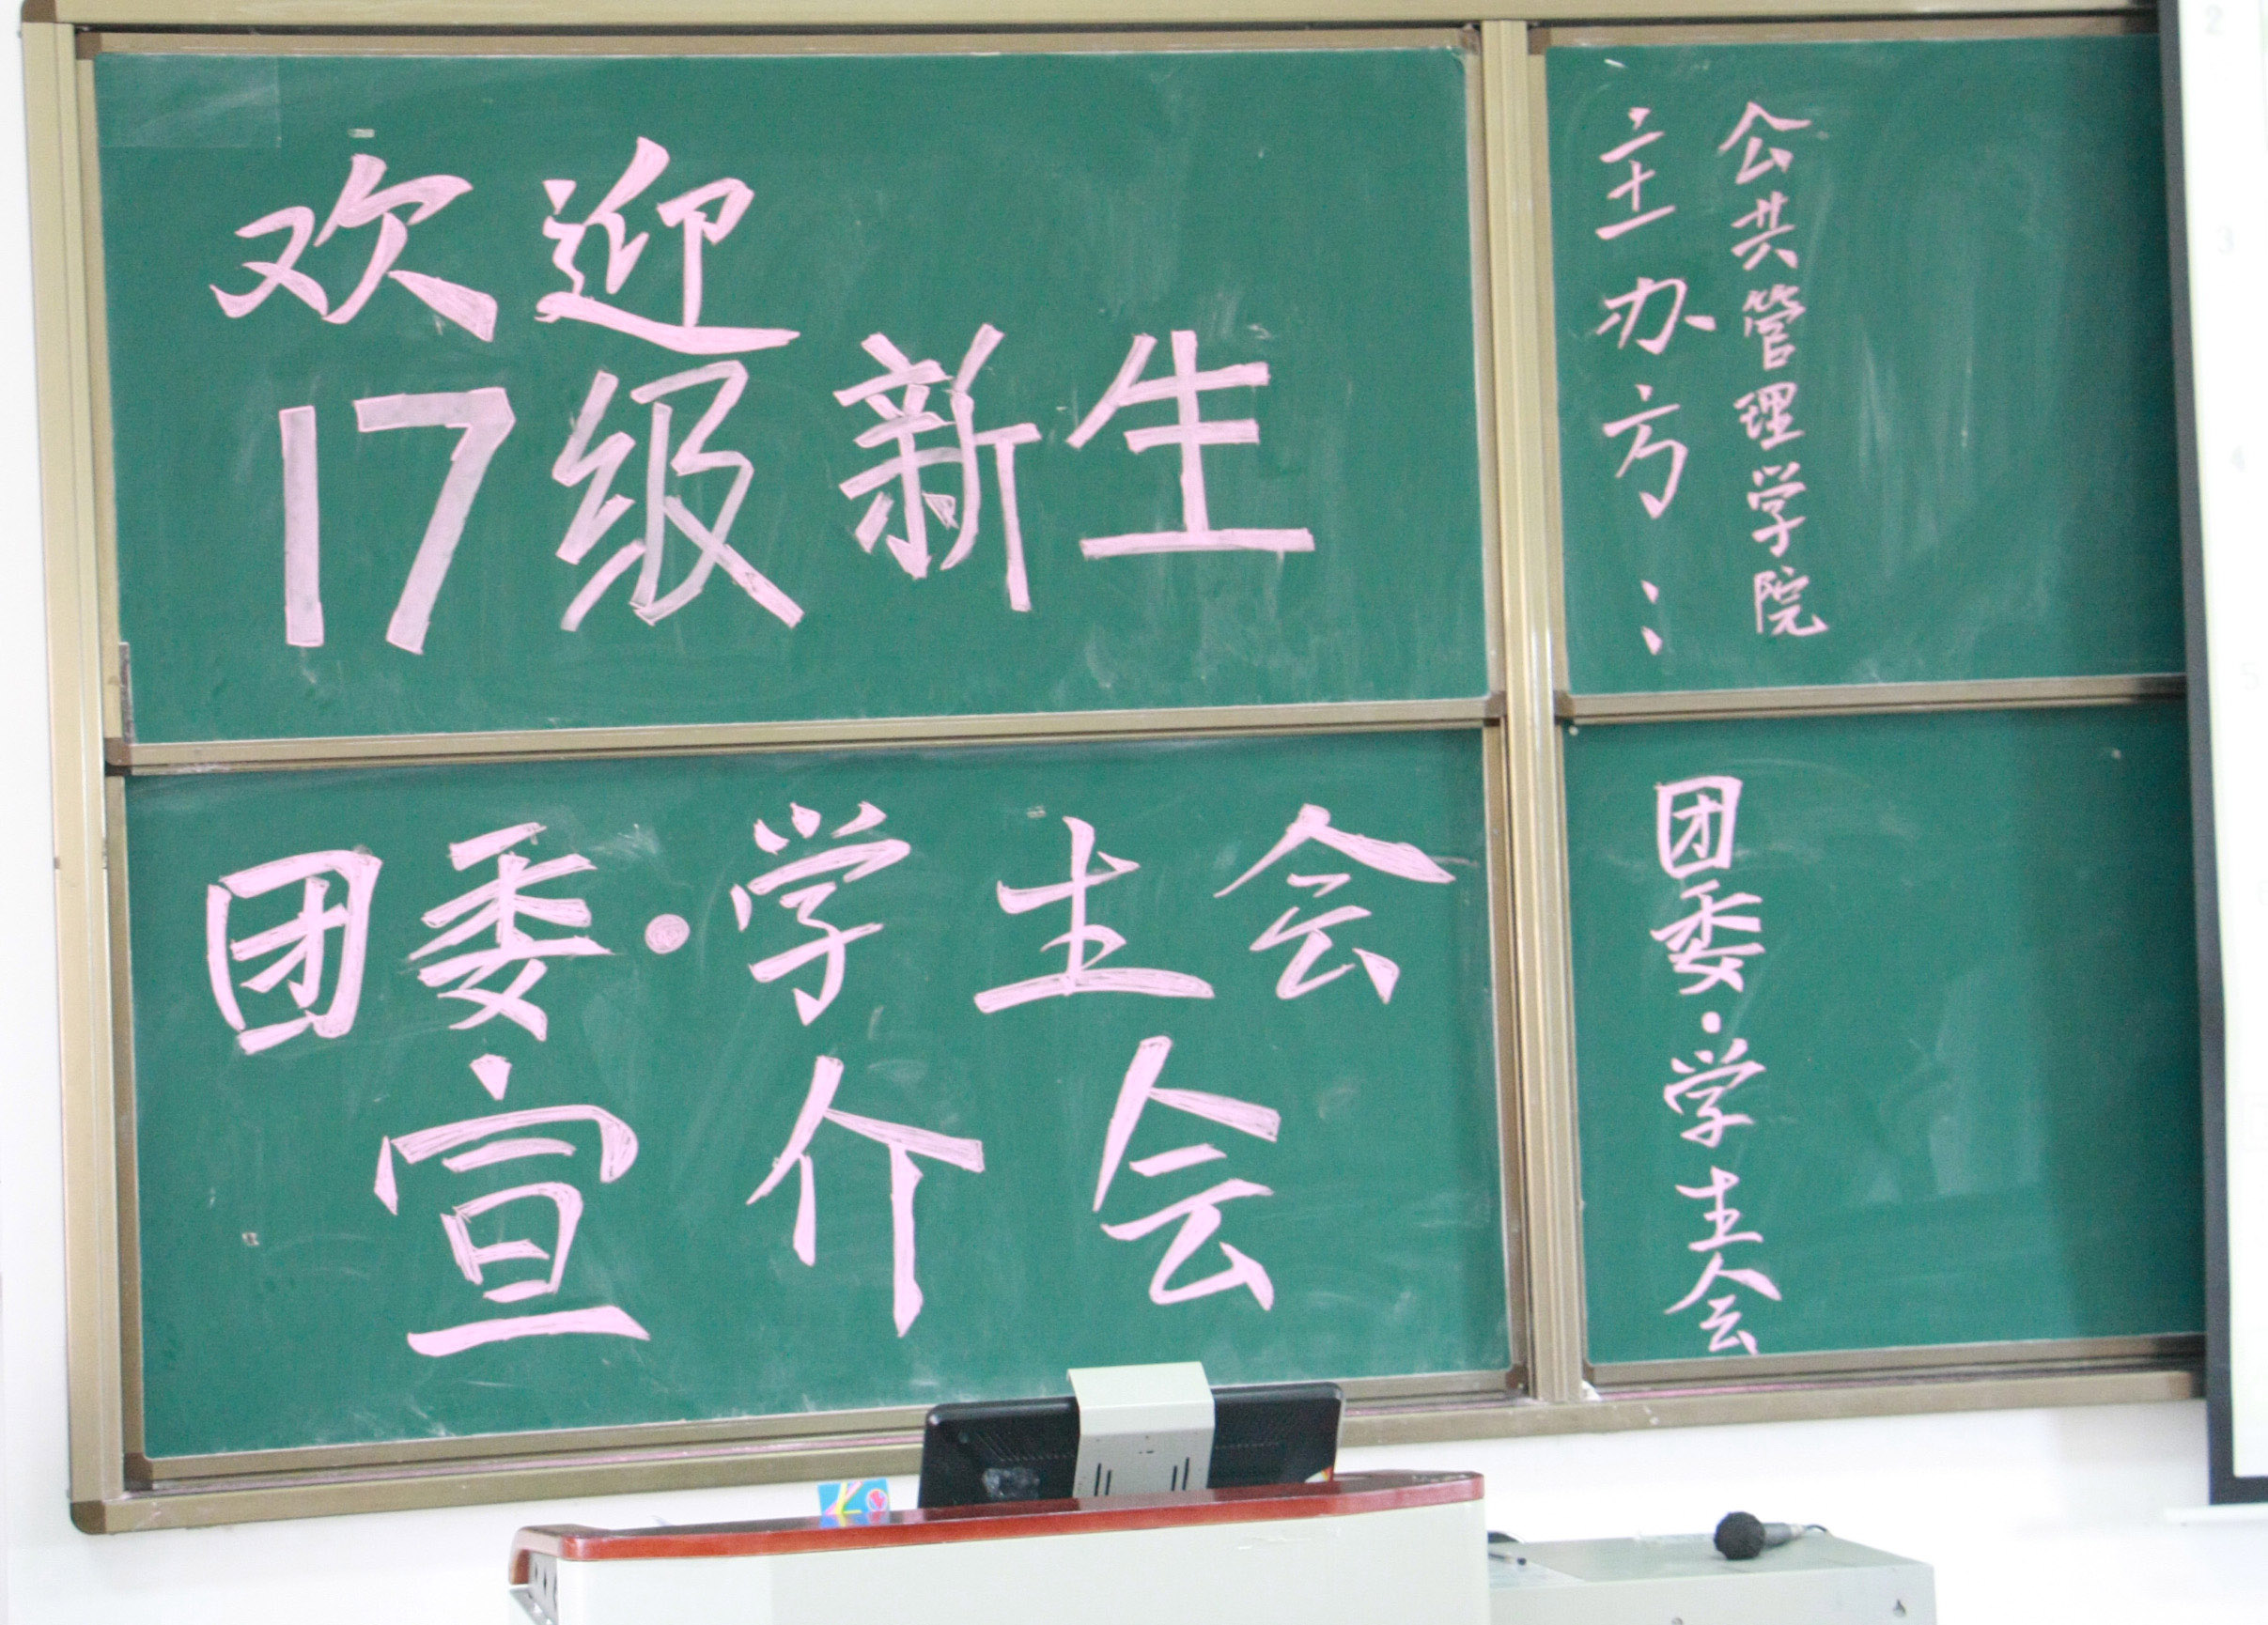 欢迎
17级新生
团委·学生会
宣介会
主办方：
公共管理学院
团委·学生会